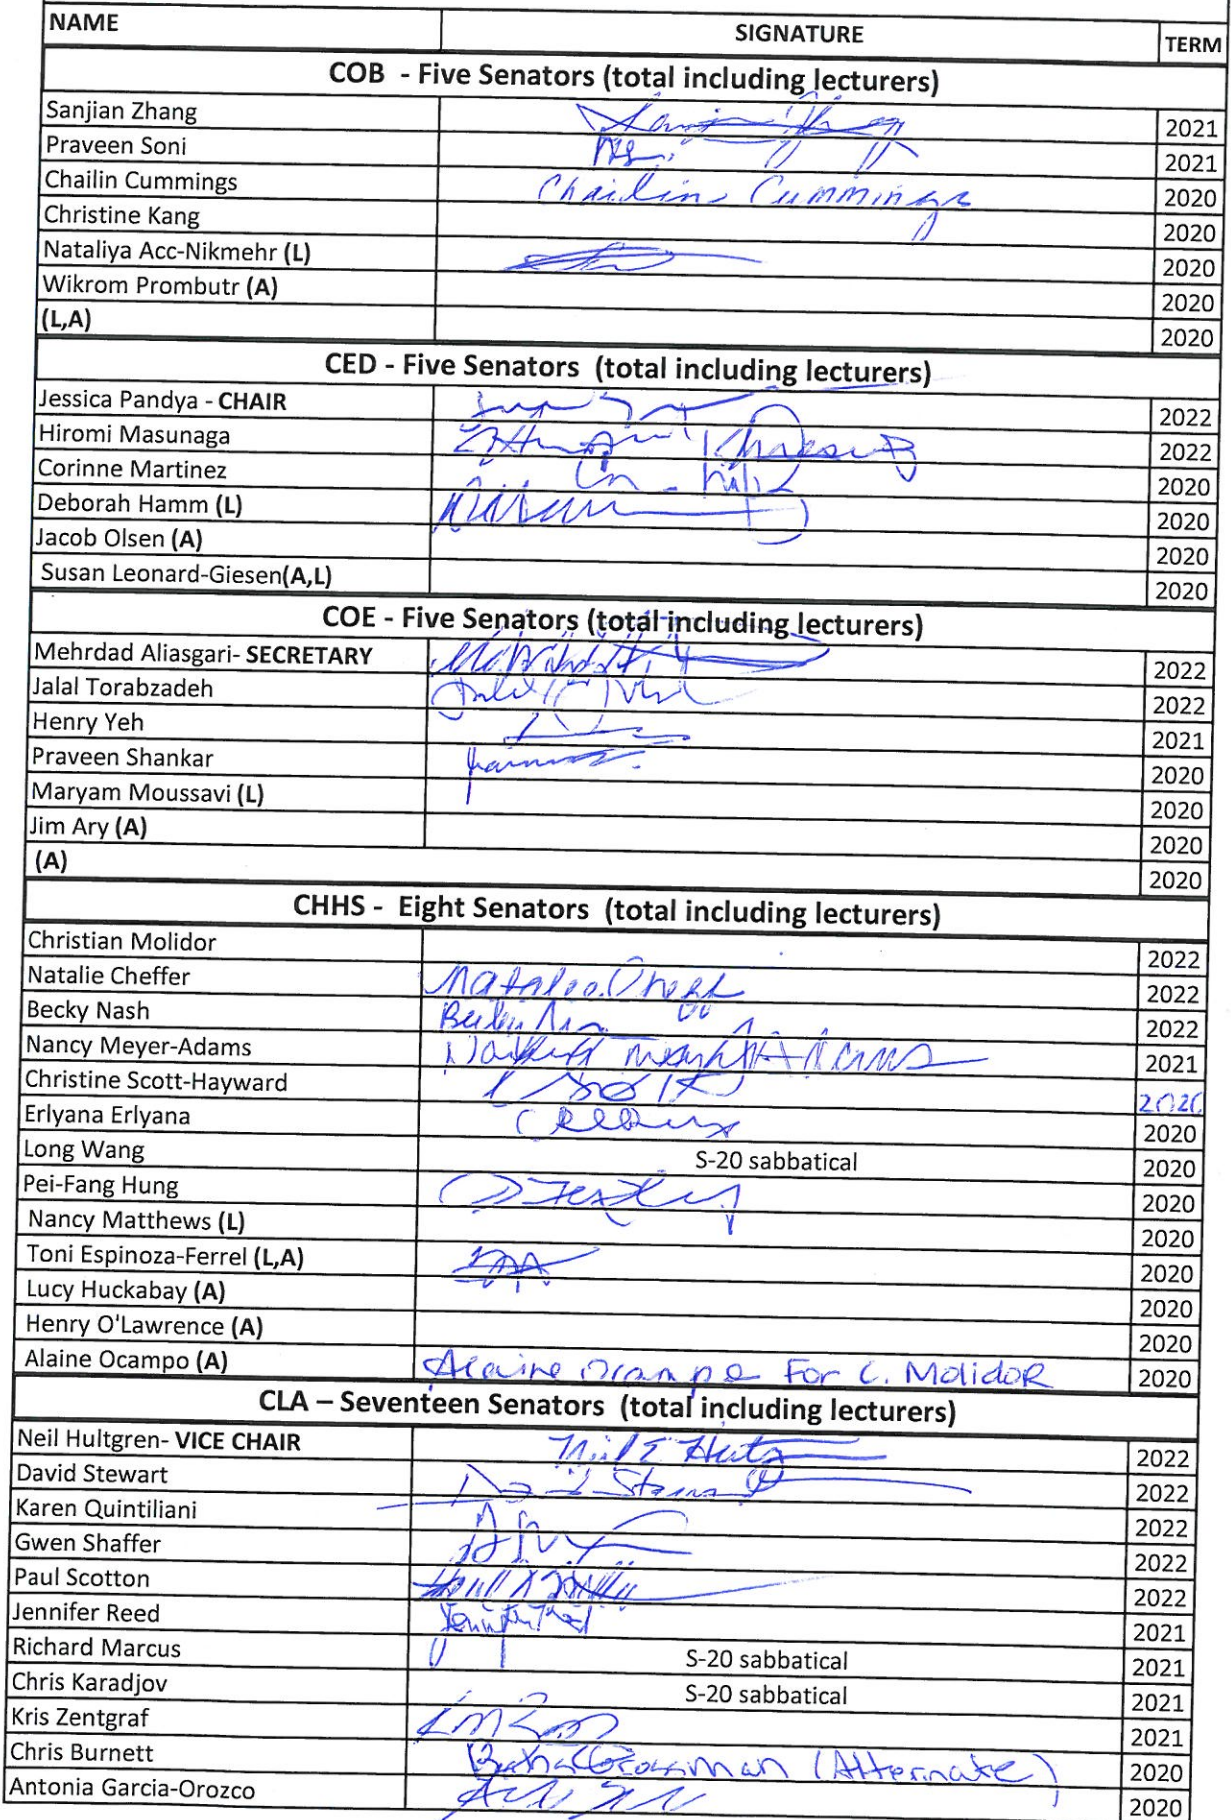 NAME SIGNATURE TERM
COB - Five Senators (total including lecturers)
Sanjian Zhang 2021
Praveen Soni 2021
Chailin Cummings Chailin Cummings 2020
Christine Kang 2020
Nataliya Acc-Nikmehr (L) 2020
Wikrom Prombutr (A) 2020
(L,A) 2020
CED - Five Senators (total including lecturers)
Jessica Pandya - CHAIR 2022
Hiromi Masunaga 2022
Corinne Martinez 2020
Deborah Hamm (L) 2020
Jacob Olsen (A) 2020
Susan Leonard-Giesen(A,L) 2020
COE - Five Senators (total including lecturers)
Mehrdad Aliasgari- SECRETARY 2022
Jalal Torabzadeh 2022
Henry Yeh 2021
Praveen Shankar 2020
Maryam Moussavi (L) 2020
Jim Ary (A) 2020
(A) 2020
CHHS - Eight Senators (total including lecturers)
Christian Molidor 2022
Natalie Cheffer 2022
Becky Nash 2022
Nancy Meyer-Adams 2021
Christine Scott-Hayward 2020
Erlyana Erlyana 2020
Long Wang S-20 sabbatical 2020
Pei-Fang Hung 2020
Nancy Matthews (L) 2020
Toni Espinoza-Ferrel (L,A) 2020
Lucy Huckabay (A) 2020
Henry O'Lawrence (A) 2020
Alaine Ocampo (A) Alaine Ocampo For C. Molidor 2020
CLA – Seventeen Senators (total including lecturers)
Neil Hultgren- VICE CHAIR 2022
David Stewart 2022
Karen Quintiliani 2022
Gwen Shaffer 2022
Paul Scotton 2022
Jennifer Reed Jennifer Reed 2021
Richard Marcus S-20 sabbatical 2021
Chris Karadjov S-20 sabbatical 2021
Kris Zentgraf 2021
Chris Burnett (Alternate) 2020
Antonia Garcia-Orozco 2020